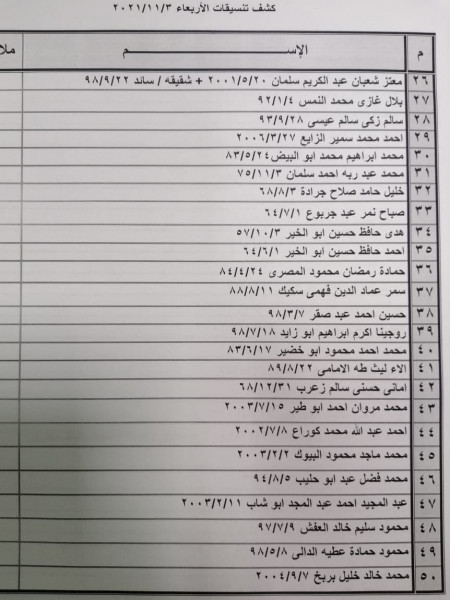 كشف تنسيقات الأربعاء ٢٠٢١/١١/٣
م الإســـــــم ملا
٢٦ معتز شعبان عبد الكريم سلمان ٢٠٠١/٥/٢٠ + شقيقه / سائد ٩٨/٩/٢٢
٢٧ بلال غازى محمد النمس ٩٢/١/٤
٢٨ سالم زكى سالم عيسى ٩٣/٩/٢٨
٢٩ احمد محمد سمير الزايع ٢٠٠٦/٣/٢٧
٣٠ محمد ابراهيم محمد ابو البيض ٨٣/٥/٢٤
٣١ محمد عبد ربه احمد سلمان ٧٥/١١/٣
٣٢ خليل حامد صلاح جرادة ٦٨/٨/٣
٣٣ صباح نمر عبد جربوع ٦٤/٧/١
٣٤ هدى حافظ حسين ابو الخير ٥٧/١٠/٣
٣٥ احمد حافظ حسين ابو الخير ٦٤/٦/١
٣٦ حمادة رمضان محمود المصرى ٨٤/٤/٢٤
٣٧ سمر عماد الدين فهمى سكيك ٨٨/٨/١١
٣٨ حسين احمد عبد صقر ٩٨/٣/٧
٣٩ روجينا اكرم ابراهيم ابو زايد ٩٨/٧/١٨
٤٠ محمد احمد محمود ابو خضير ٨٣/٦/١٧
٤١ الاء ليث طه الامامى ٨٩/٨/٢٢
٤٢ امانى حسنى سالم زعرب ٦٨/١٢/٣١
٤٣ محمد مروان احمد ابو طير ٢٠٠٣/٧/١٥
٤٤ احمد عبد الله محمد كوراع ٢٠٠٢/٧/٨
٤٥ محمد ماجد محمود البيوك ٢٠٠٣/٢/٢
٤٦ محمد فضل عبد ابو حليب ٩٤/٨/٥
٤٧ عبد المجيد احمد عبد المجد ابو شاب ٢٠٠٣/٢/١١
٤٨ محمود سليم خالد العفش ٩٧/٧/٩
٤٩ محمود حمادة عطيه الدالى ٩٨/٥/٨
٥٠ محمد خالد خليل بريخ ٢٠٠٤/٩/٧